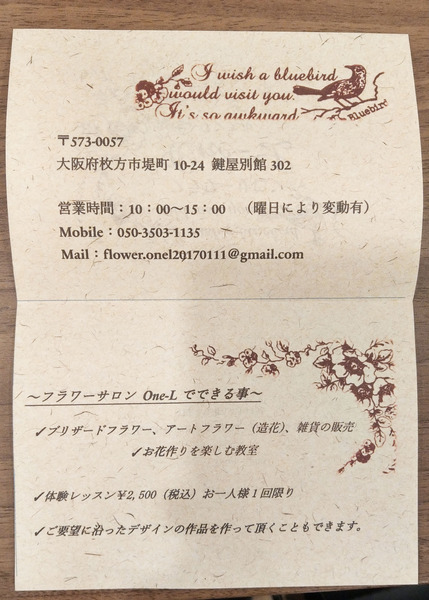 I wish a bluebird
would visit you.
It's so awkward
Bluebird
〒573-0057
大阪府枚方市堤町 10-24 鍵屋別館 302
営業時間：10：00～15：00 （曜日により変動有）
Mobile：050-3503-1135
Mail：flower.onel20170111@gmail.com
～フラワーサロン One-L でできる事～
✓ブリザードフラワー、アートフラワー（造花）、雑貨の販売
✓お花作りを楽しむ教室
✓体験レッスン¥2,500（税込）お一人様1回限り
✓ご要望に沿ったデザインの作品を作って頂くこともできます。